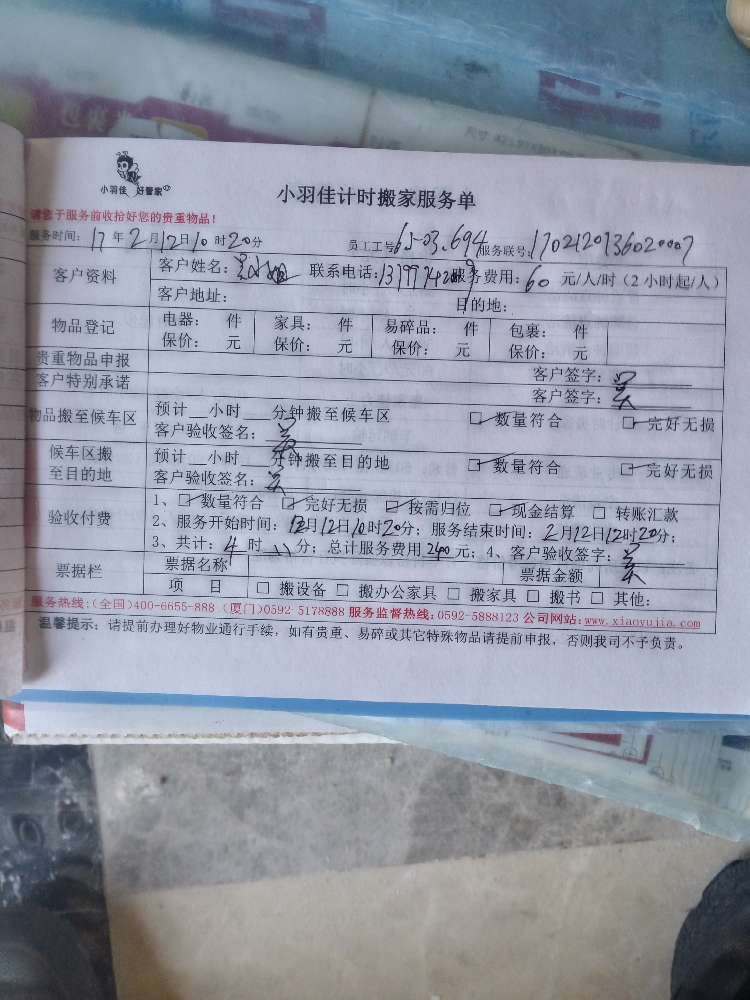 小羽佳 好管家
小羽佳计时搬家服务单
请您于服务前收拾好您的贵重物品!
服务时间: 17年2月12日10时20分 员工工号65-03.694服务联号:170212013602
客户资料 客户姓名: 小姐 联系电话: 服务费用: 60 元/人/时(2小时起/人)
客户地址: 目的地:
物品登记 电器: 件 家具: 件 易碎品: 件 包裹: 件
保价: 元 保价: 元 保价: 元 保价: 元
贵重物品申报 客户签字:
客户特别承诺 客户签字:
物品搬至候车区 预计__小时___分钟搬至候车区 ☑数量符合 ☑完好无损
客户验收签名:
候车区搬至目的地 预计__小时___分钟搬至目的地 ☑数量符合 ☑完好无损
客户验收签名:
验收付费 1、☑数量符合 ☑完好无损 ☑按需归位 ☑现金结算 □转账汇款
2、服务开始时间: 2月12日10时20分; 服务结束时间: 2月12日12时20分;
3、共计: 4时 分; 总计服务费用240元; 4、客户验收签字:
票据栏 票据名称 票据金额
项 目 □搬设备 □搬办公家具 □搬家具 □搬书 □其他:
服务热线:(全国)400-6655-888 (厦门)0592 5178888 服务监督热线:0592-5888123 公司网站:www.xiaoyujia.com
温馨提示: 请提前办理好物业通行手续, 如有贵重、易碎或其它特殊物品请提前申报, 否则我司不予负责。